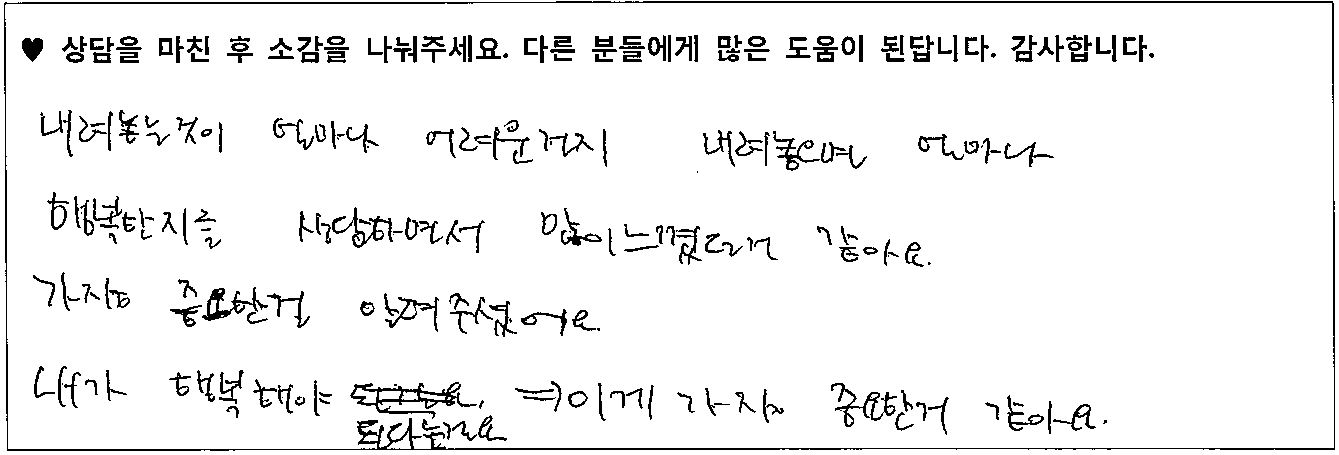 ♥ 상담을 마친 후 소감을 나눠주세요. 다른 분들에게 많은 도움이 된답니다. 감사합니다.
내려놓는것이 얼마나 어려운건지 내려놓으면 얼마나
행복한지를 상담하면서 많이 느꼈던거 같아요.
가장 중요한걸 알려주셨어요
내가 행복해야 된다는걸요 ⇒ 이게 가장 중요한거 같아요.